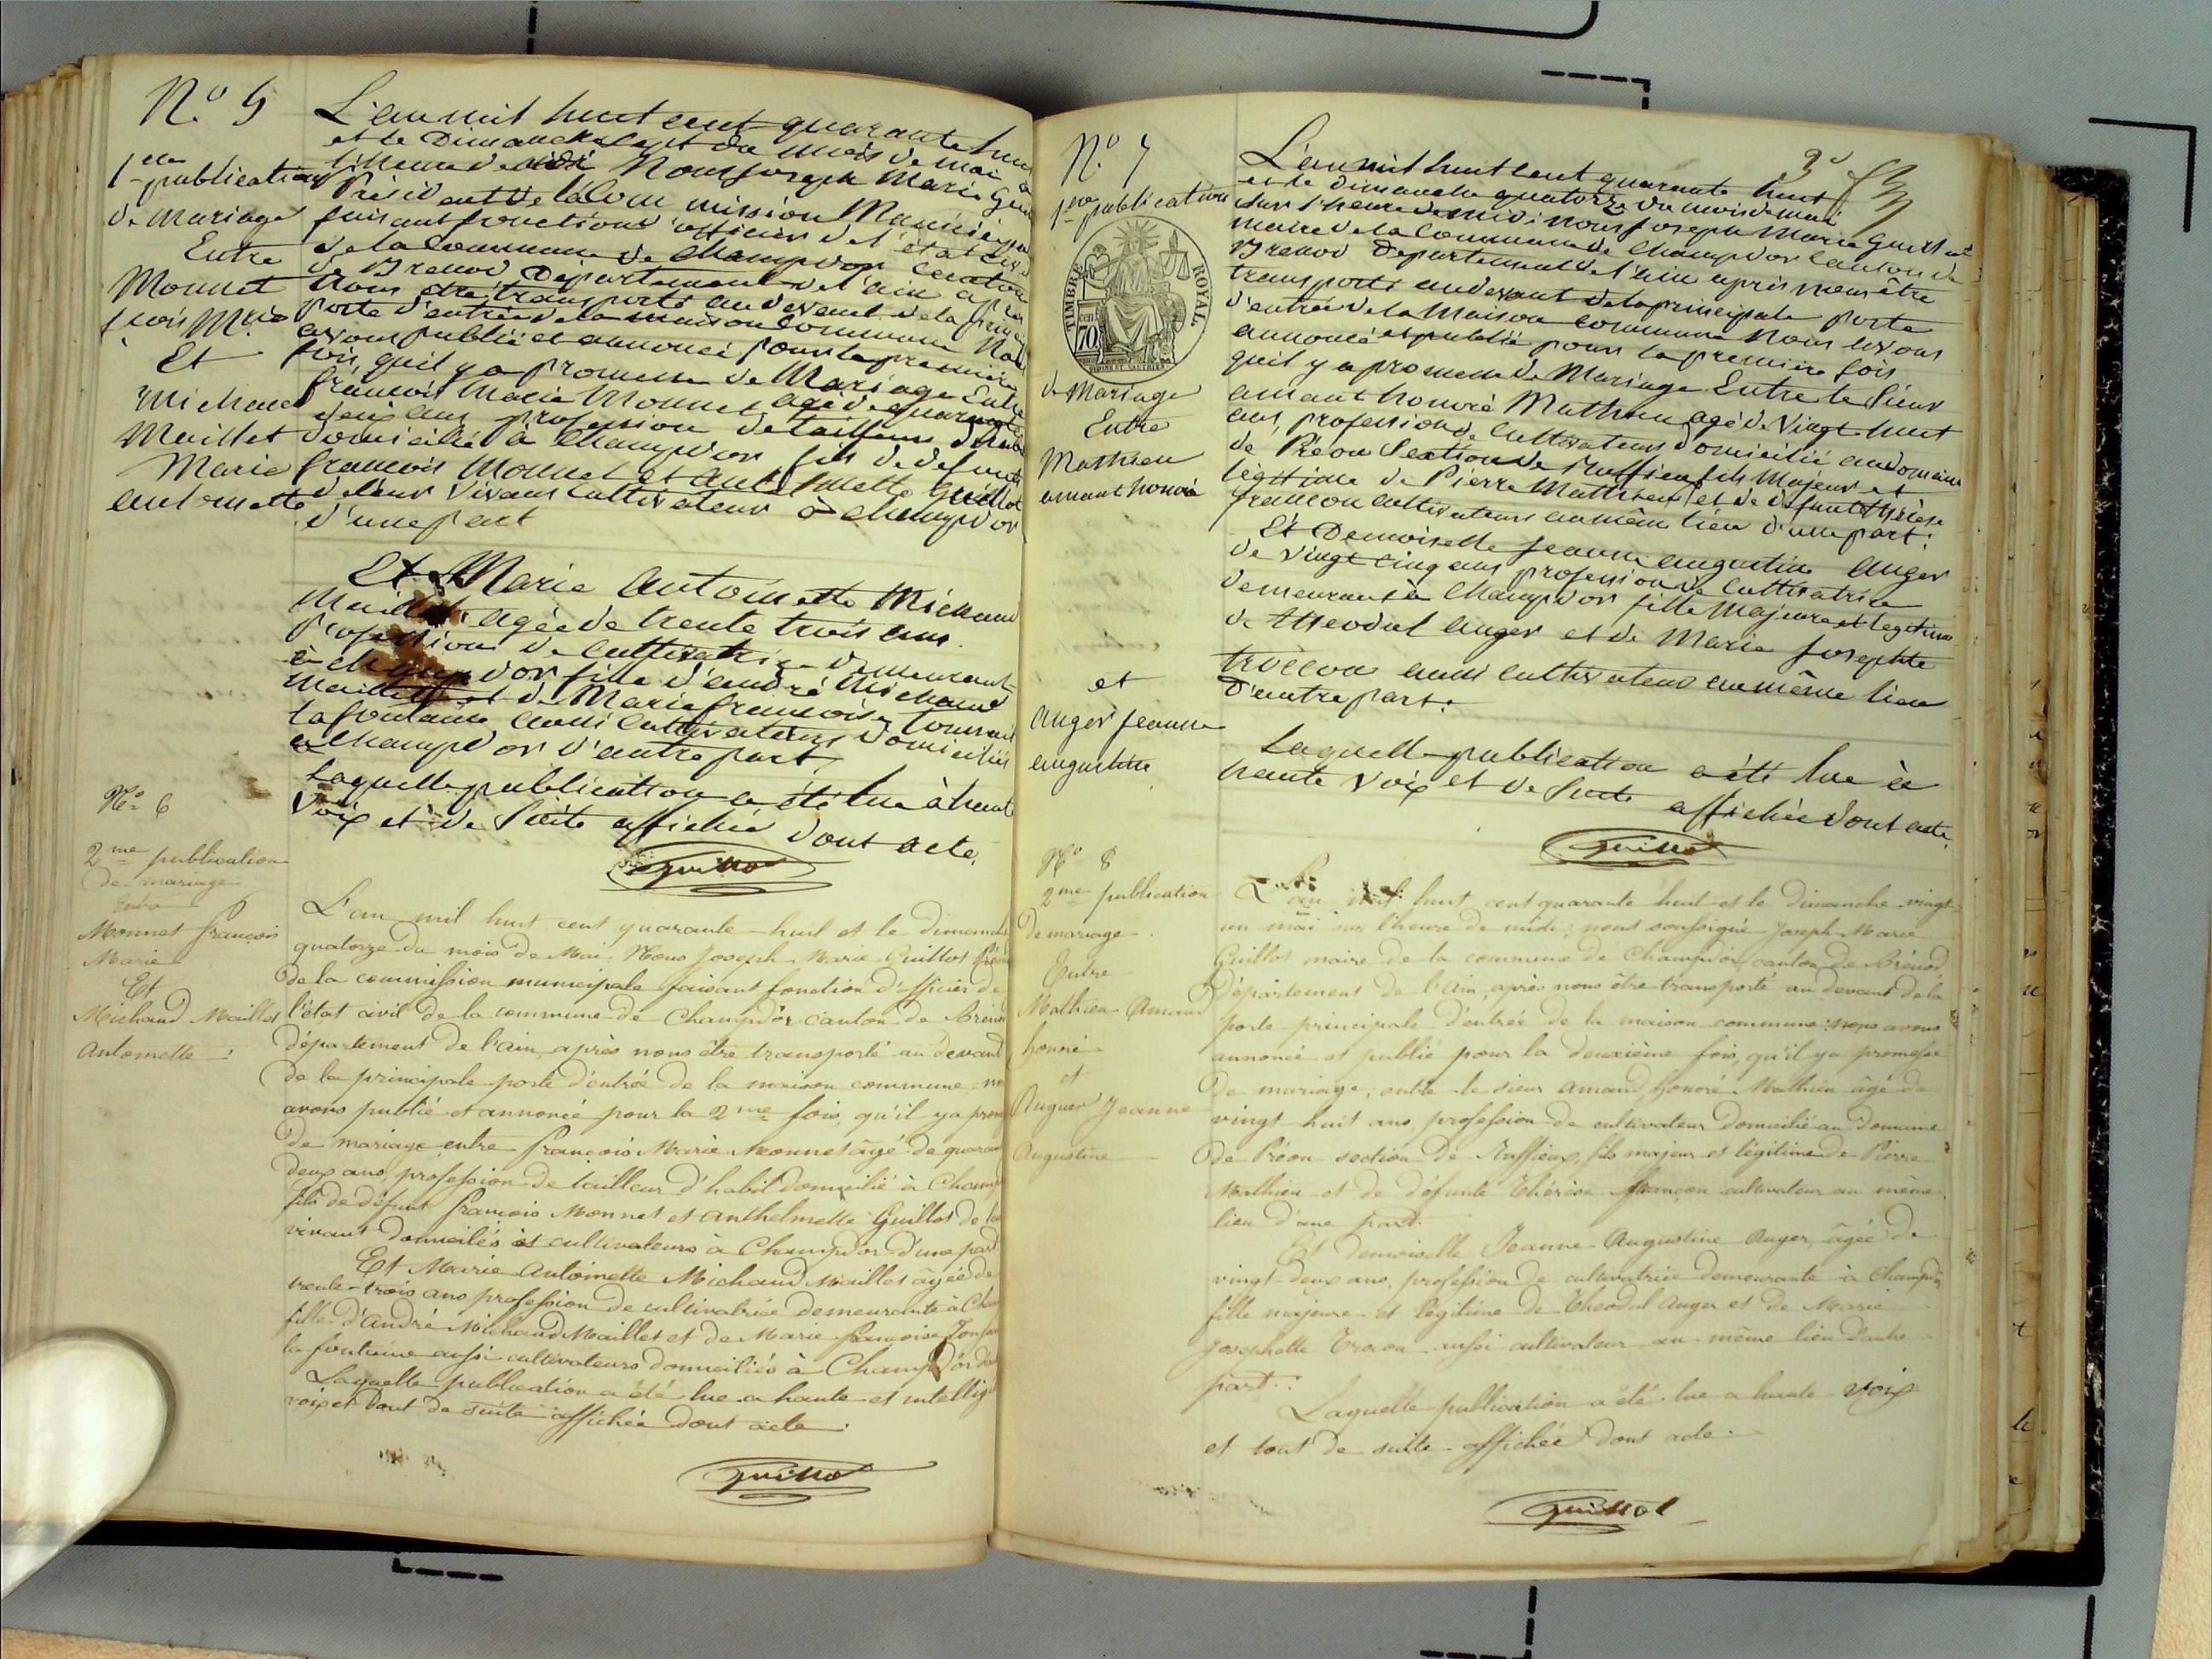 N.o 5
1ere publication
de Mariage
Entre
Monnet
fcois Mrie
Et
Michaud
Maillet
Marie
antoinette
L'an mil huit cent quarante huit
et le Dimanche sept du mois de mai à
l'heure de midi Nous Joseph Marie
Président de la Commission Municipale
faisant fonctions d'officier de l'état civil
de la Commune de Champdor Canton
de Brenod Departement de l'ain après
Nous être transporté au devant de la
porte d'entrée de la maison Commune Nous
avons publié et annoncé pour la première
fois qu'il y a promesse de Mariage Entre
françois Marie Monnet agé de quarante
deux ans profession de tailleur
domicilié à Champdor fils de defunts
françois Monnet et anthelmette Guillot
de leur vivans Cultivateur à Champdor
d'une part
Et Marie Antoinette Michaud
Maillet agée de trente trois ans
profession de Cultivatrice demeurant
à champdor fille d'andré Michaud
Maillet et de Marie françoise
la fontaine aussi Cultivateurs domiciliés
a Champdor d'autre part
Laquelle publication a été lue à haute
Voix et de Suite affichée dont acte.
Guillot
No 6
2me publication
de mariage
Entre
Monnet françois
Marie
Et
Michaud Maillet
Antoinette :
L'an mil huit cent quarante-huit et le dimanche
quatorze du mois de Mai, Nous Joseph Marie Guillot
de la commission municipale faisant fonction d'officier de
l'état civil de la commune de Champdor canton de Brenod
département de l'ain, après nous être transporté au devant
de la principale porte d'entrée de la maison commune
avons publié et annoncé pour la 2me fois, qu'il y a
de mariage entre françois Marie Monnet âgé de
deux ans, profession de tailleur d'habit domicilié à
fils de défunt françois Monnet et anthelmette Guillot de
vivant domiciliés et cultivateurs à Champdor d'une part
Et Marie Antoinette Michaud Maillet âgée de
trente-trois ans profession de cultivatrice demeurante à
fille d'André Michaud Maillet et de Marie françoise
la fontaine aussi cultivateurs domiciliés à Champdor
Laquelle publication a été lue a haute et
voix et tout de suite affichée dont acte :
Guillot
N.o 7
1ere publication
TIMBRE ROYAL
70
de Mariage
Entre
Mathieu
amant honoré
et
Auger jeanne
augustine
L'an mil huit cent quarante huit
et le dimanche quatorze du mois de mai
sur l'heure de midi nous joseph Marie Guillot
maire de la Commune de Champdor Canton de
Brenod Departement de l'ain après nous être
transporté au devant de la principale porte
d'entrée de la Maison commune Nous avons
annoncé et publié pour la première fois
qu'il y a promesse de Mariage Entre le Sieur
amant honoré Mathieu agé de Vingt huit
ans, profession de Cultivateur domicilié au domaine
de Préou Section de Ruffieu fils Majeur et
légitime de Pierre Mathieu et de defunte Thérèse
françon cultivateurs au même lieu d'une part.
Et Demoiselle jeanne augustine auger
de vingt cinq ans profession de Cultivatrice
demeurant à Champdor fille Majeure et légitime
de theodul auger et de Marie josephte
trocon aussi cultivateur au même lieu
d'autre part.
Laquelle publication a été lue à
haute Voix et de Suite affichée dont acte.
Guillot
No 8
2me publication
de mariage
Entre
Mathieu Amand
honoré
et
Auguer Jeanne
Augustine
L'an mil huit cent quarante huit et le dimanche vingt-
un mai sur l'heure de midi ; nous soussigné Joseph Marie
Guillot maire de la commune de Champdor, canton de Brénod
Département de l'Ain, après nous être transporté au devant de la
porte principale d'entrée de la maison commune : nous avons
annoncé et publié pour la deuxième fois, qu'il y a promesse
de mariage ; entre le sieur Amand honoré Mathieu âgé de
vingt huit ans, profession de cultivateur domicilié au domaine
de Préou section de Ruffieux, fils majeur et légitime de Pierre
Mathieu et de défunte Thérèse françon cultivateur au même
lieu d'une part.
Et demoiselle Jeanne Augustine Auger, âgée de
vingt-deux ans, profession de cultivatrice demeurante à Champdor
fille majeure et légitime de Theodul Auger et de Marie
Josephette Trocon aussi cultivateur au même lieu d'autre
part :
Laquelle publication a été lue a haute voix
et tout de suite affichée dont acte.
Guillot